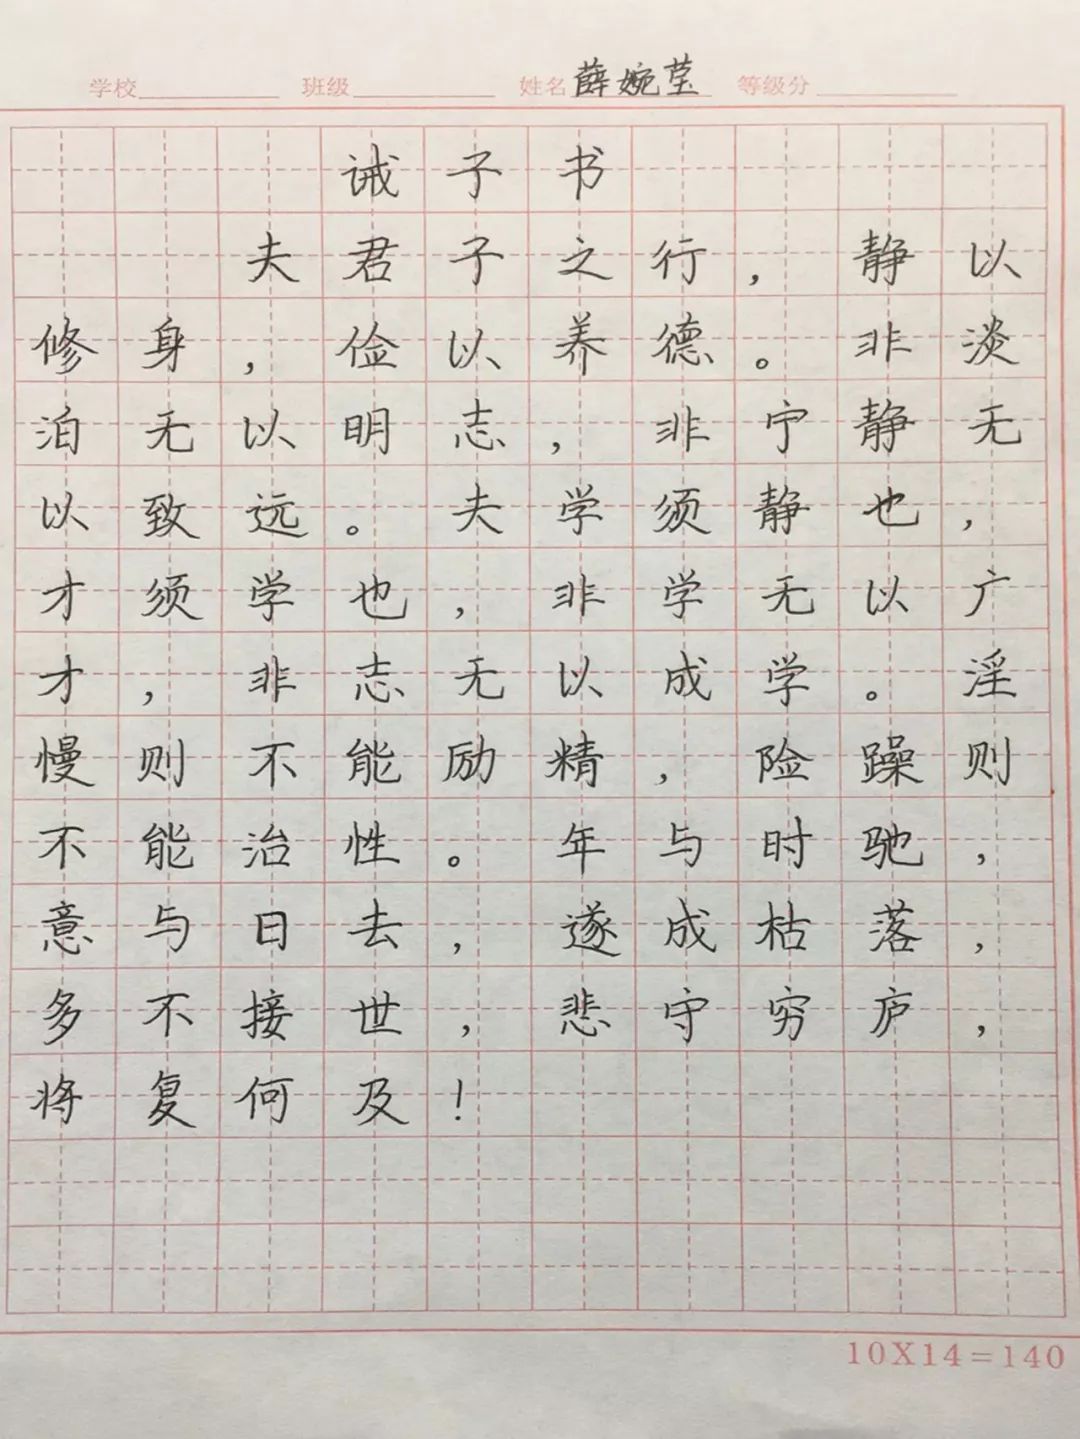 学校 班级 姓名 薛婉莹 等级分
诫子书
夫君子之行，静以
修身，俭以养德。非淡
泊无以明志，非宁静无
以致远。夫学须静也，
才须学也，非学无以广
才，非志无以成学。淫
慢则不能励精，险躁则
不能治性。年与时驰，
意与日去，遂成枯落，
多不接世，悲守穷庐，
将复何及！
10X14=140